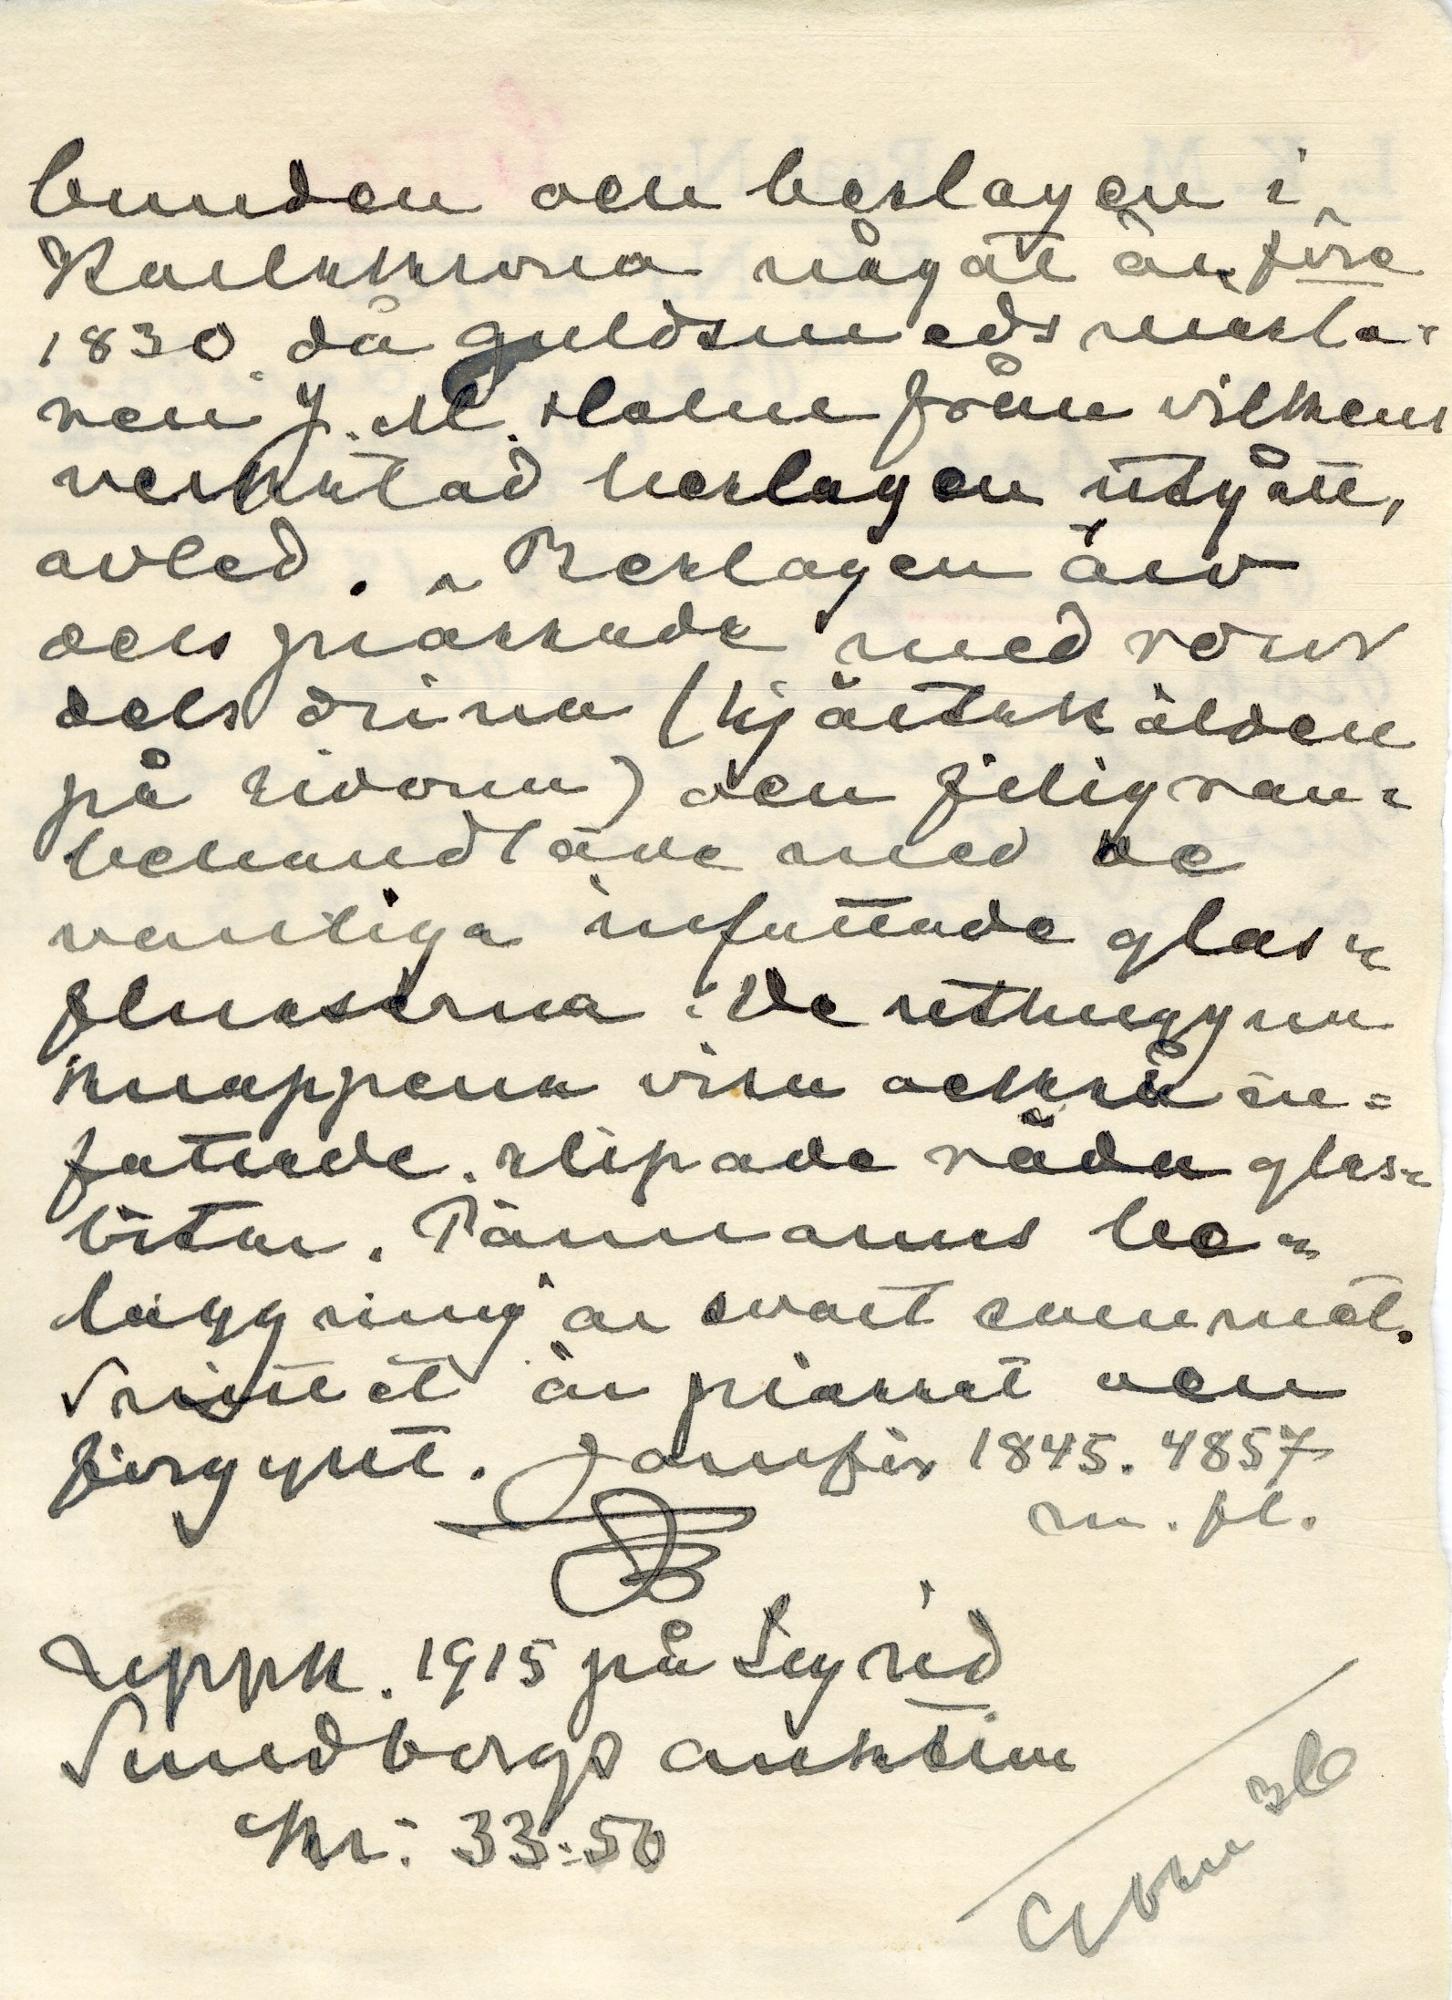 bunden och beslagen i
Karlskrona något år före
1830 då guldsmedsmästa=
ren J. M. Holm från vilkens
verkstad beslagen utgått,
avled. Beslagen äro
dels prässade med rosor
dels drivna (hjärtskölden
på sidorna) och filigran=
behandlade med de
vanliga infattade glas=
flusserna. De uthuggna
knapparna visa också in=
fattade, slipade röda glas=
bitar. Pärmarnas be=
läggning är svart sammet.
Snittet är prässat och
förgyllt. Jämför 1845. 4857
m. fl.
Uppk. 1915 på Sigrid
Sundbergs auktion
Kr: 33:50